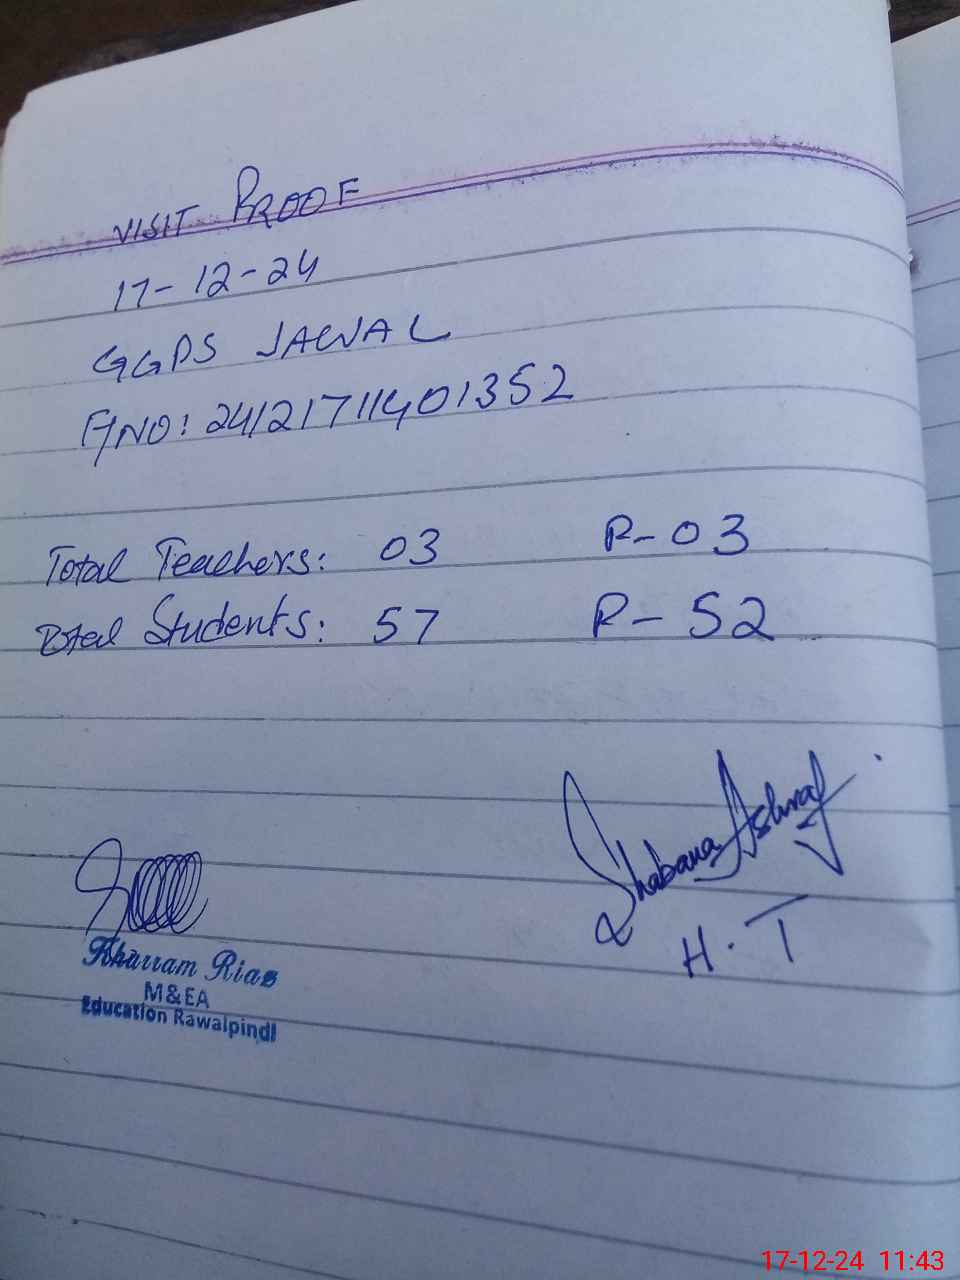 VISIT PROOF
17-12-24
GGPS JAWAL
F/NO: 24121711401352
Total Teachers: 03 P-03
Total Students: 57 P-52
Shabana Ashraf
H.T
Khurram Riaz
M&EA
Education Rawalpindi
17-12-24 11:43